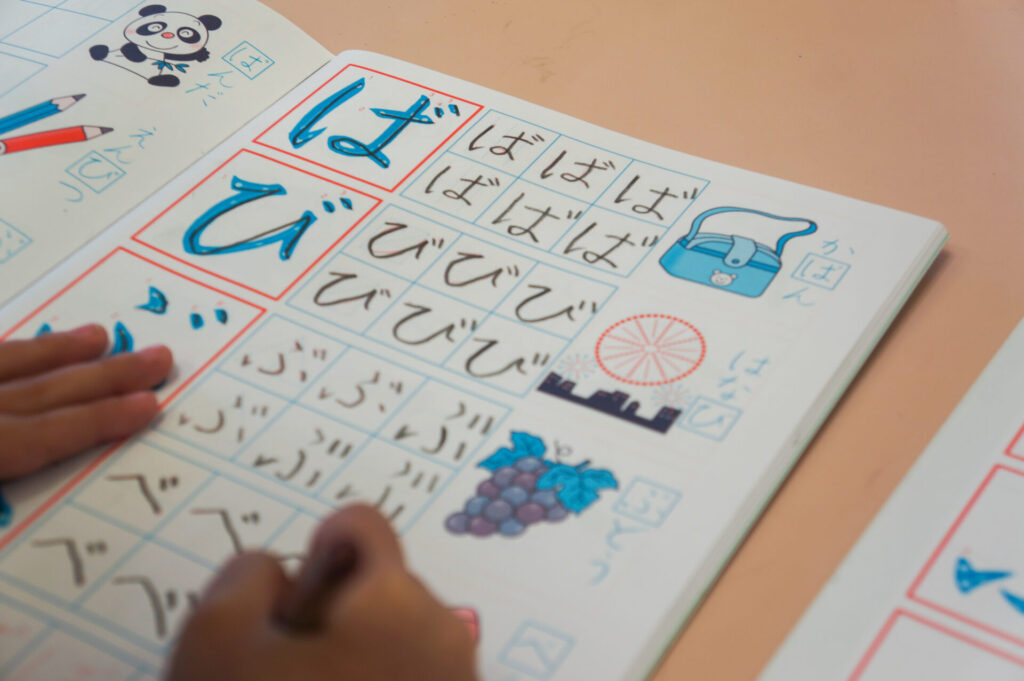 ぱんだ
えんぴつ
ば
ば ば ば
ば ば ば
かばん
び
び び び
び び び
はなび
ぶ ぶ ぶ
ぶ ぶ ぶ
ぶどう
べ
べ べ